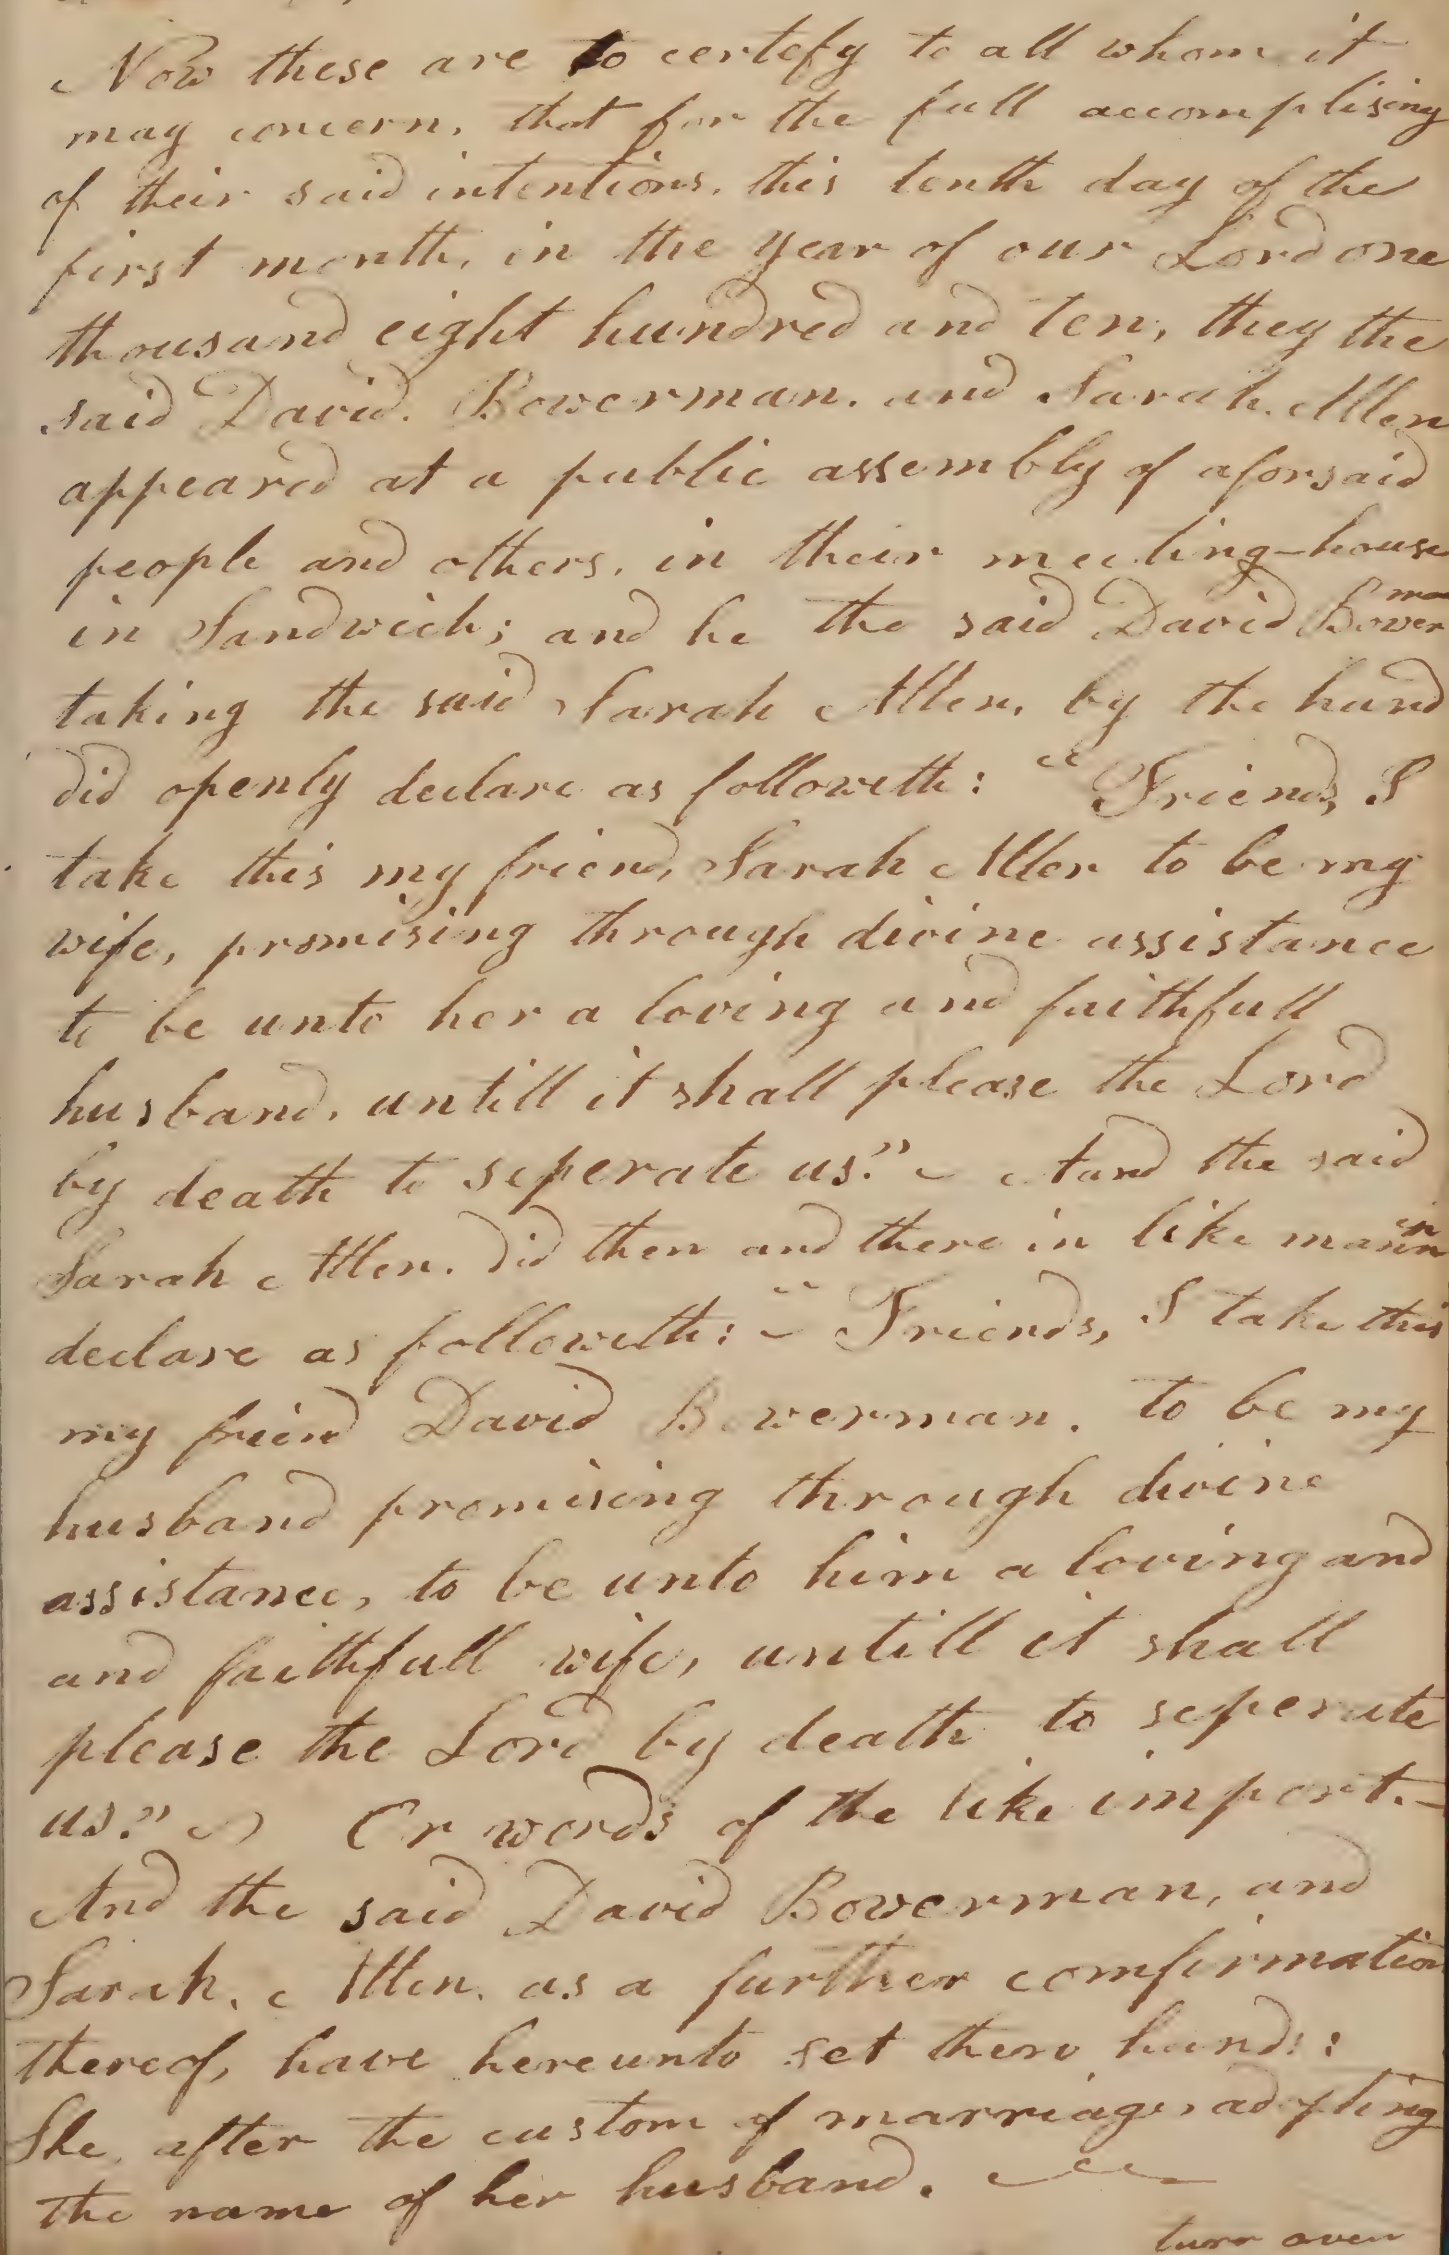 Now these are to certefy to all whom it
may concern, that for the full accomplising
of their said intentions, this tenth day of the
first month, in the year of our Lord one
thousand eight hundred and ten, they the
said David. Bowerman. and Sarah. Allen
appeared at a public assembly of aforsaid
people and others, in their meeting-house
in Sandwich; and he the said David Bowerman
taking the said Sarah Allen, by the hand
did openly declare as followeth: "Friends, I
take this my friend, Sarah Allen to be my
wife, promising through divine assistance
to be unto her a loving and faithfull
husband, untill it shall please the Lord
by death to seperate us." And the said
Sarah Allen. did then and there in like mannr
declare as followeth: "Friends, I take this
my friend David Bowerman. to be my
husband promising through divine
assistance, to be unto him a loving and
and faithfull wife, untill it shall
please the Lord by death to seperate
us." Or words of the like import.—
And the said David Bowerman, and
Sarah. Allen. as a further comfirmation
thereof, have hereunto set there hands:
She, after the custom of marriage, adopting
the name of her husband.
turn over